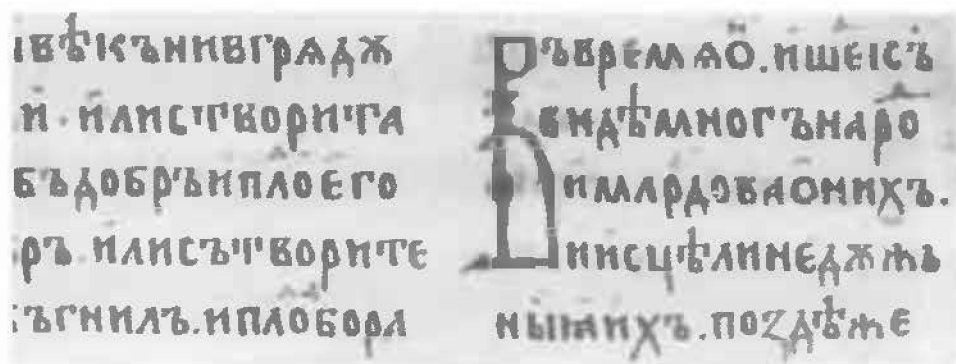 ıвѣкънивградѫ
и · илистворитa
бъдобръиплоего
ръ. илисътворите
ъгнилъ. иплобора
Въвремѧо. ишеісъ
видѣмногънаро
имлрдоваонихъ.
иисцѣлинедѫжь
ныѩихъ. позⷣѣже